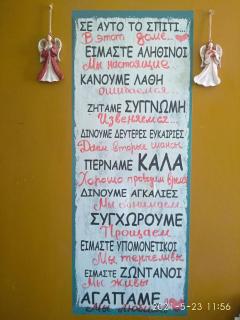 ΣΕ ΑΥΤΟ ΤΟ ΣΠΙΤΙ...
В этом доме...
ΕΙΜΑΣΤΕ ΑΛΗΘΙΝΟΙ
Мы настоящие
ΚΑΝΟΥΜΕ ΛΑΘΗ
ошибаемся...
ΖΗΤΑΜΕ ΣΥΓΓΝΩΜΗ
Извеняемся...
ΔΙΝΟΥΜΕ ΔΕΥΤΕΡΕΣ ΕΥΚΑΙΡΙΕΣ
Даём второй шанс
ΠΕΡΝΑΜΕ ΚΑΛΑ
Хорошо проводим время
ΔΙΝΟΥΜΕ ΑΓΚΑΛΙΕΣ
Мы обнимаем
ΣΥΓΧΩΡΟΥΜΕ
Прощаем
ΕΙΜΑΣΤΕ ΥΠΟΜΟΝΕΤΙΚΟΙ
Мы терпеливы
ΕΙΜΑΣΤΕ ΖΩΝΤΑΝΟΙ
Мы живы
ΑΓΑΠΑΜΕ
Мы любим
2021-5-23 11:56